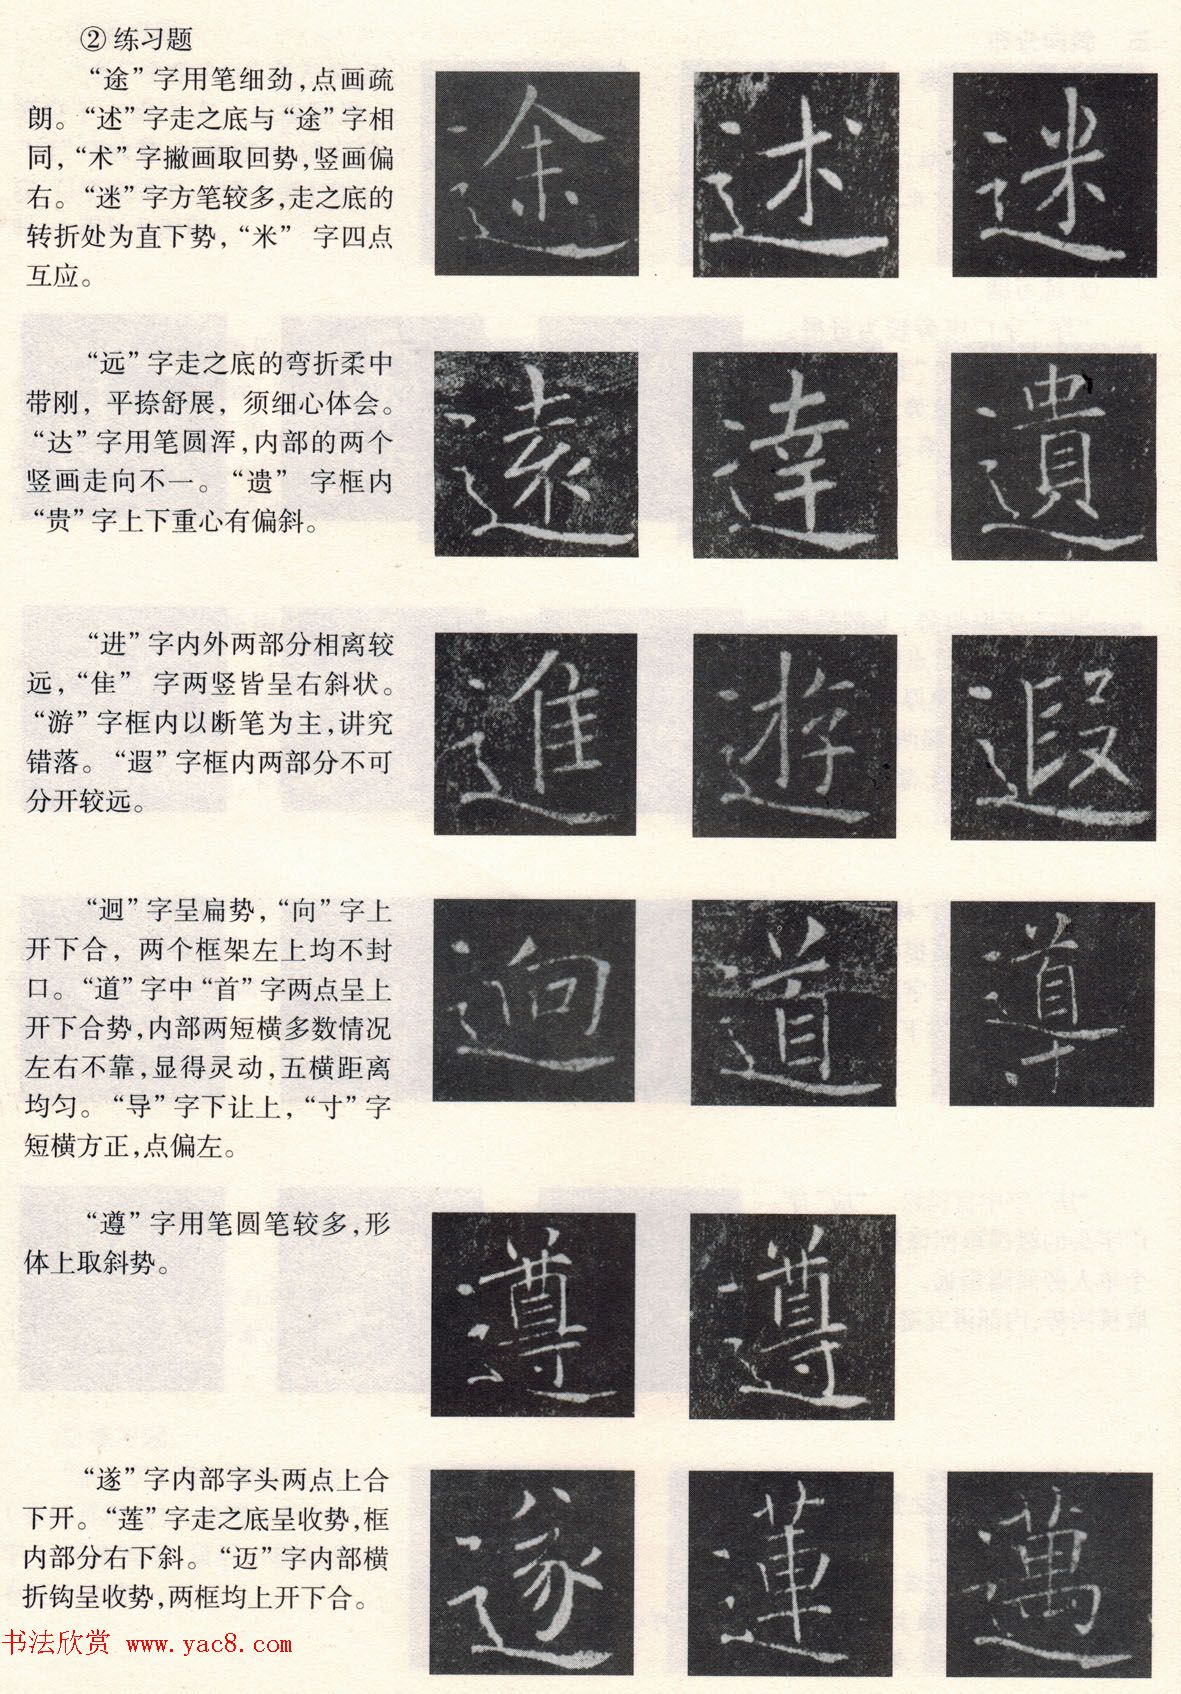 ②练习题
“途”字用笔细劲，点画疏
朗。“述”字走之底与“途”字相
同，“术”字撇画取回势，竖画偏
右。“迷”字方笔较多，走之底的
转折处为直下势，“米” 字四点
互应。
途 述 迷
“远”字走之底的弯折柔中
带刚，平捺舒展，须细心体会。
“达”字用笔圆浑，内部的两个
竖画走向不一。“遗” 字框内
“贵”字上下重心有偏斜。
遠 達 遺
“进”字内外两部分相离较
远，“隹” 字两竖皆呈右斜状。
“游”字框内以断笔为主，讲究
错落。“遐”字框内两部分不可
分开较远。
進 遊 遐
“迥”字呈扁势，“向”字上
开下合，两个框架左上均不封
口。“道”字中“首”字两点呈上
开下合势，内部两短横多数情况
左右不靠，显得灵动，五横距离
均匀。“导”字下让上，“寸”字
短横方正，点偏左。
迥 道 導
“遵”字用笔圆笔较多，形
体上取斜势。
遵 遵
“遂”字内部字头两点上合
下开。“莲”字走之底呈收势，框
内部分右下斜。“迈”字内部横
折钩呈收势，两框均上开下合。
遂 蓮 邁
书法欣赏 www.yac8.com